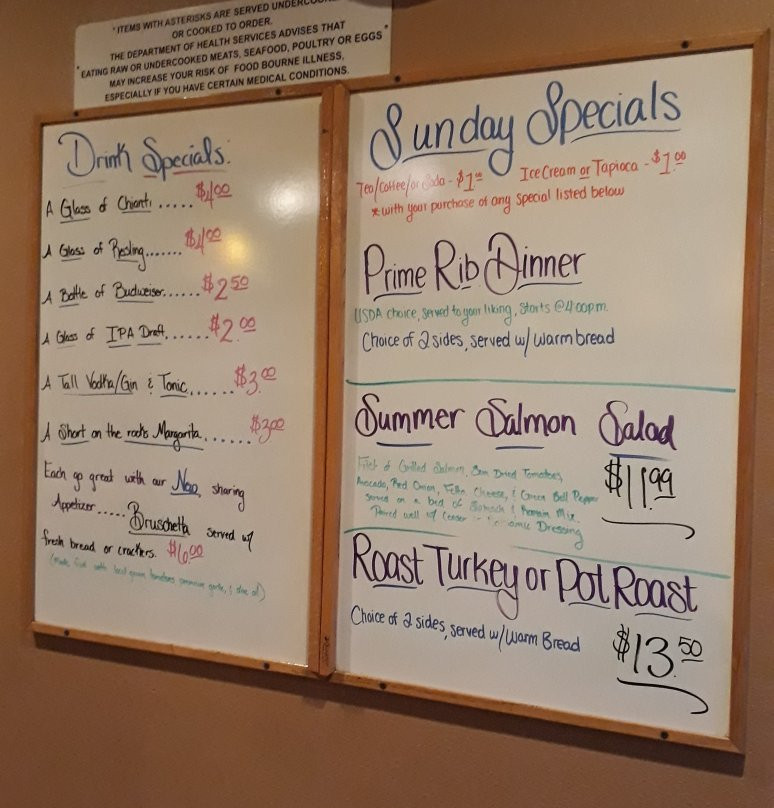 *ITEMS WITH ASTERISKS ARE SERVED UNDERCOOKED
OR COOKED TO ORDER.
THE DEPARTMENT OF HEALTH SERVICES ADVISES THAT
"EATING RAW OR UNDERCOOKED MEATS, SEAFOOD, POULTRY OR EGGS"
MAY INCREASE YOUR RISK OF FOOD BOURNE ILLNESS,
ESPECIALLY IF YOU HAVE CERTAIN MEDICAL CONDITIONS.
Drink Specials:
A Glass of Chianti ..... $4.00
A Glass of Riesling....... $4.00
A Bottle of Budweiser...... $2.50
A Glass of IPA Draft....... $2.00
A Tall Vodka/Gin & Tonic...... $3.00
A Short on the rocks Margarita....... $3.00
Each go great with our New sharing
Appetizer..... Bruschetta served w/
fresh bread or crackers. $6.00
with local grown tomatoes garlic, & olive oil)
Sunday Specials
Tea/Coffee/or Soda - $1.00 Ice Cream or Tapioca - $1.00
*with your purchase of any Special listed below
Prime Rib Dinner
USDA choice, served to your liking, Starts @4:00pm.
Choice of 2 sides, served w/ Warm bread
Summer Salmon Salad
Filet of Grilled Salmon, Sun Dried Tomatoes,
Avocado, Red Onion, Feta Cheese, & Green Bell Pepper
served on a bed of Spinach & Romain Mix.
Paired well w/ Dressing
$11.99
Roast Turkey or Pot Roast
Choice of 2 sides, served w/ Warm Bread
$13.50